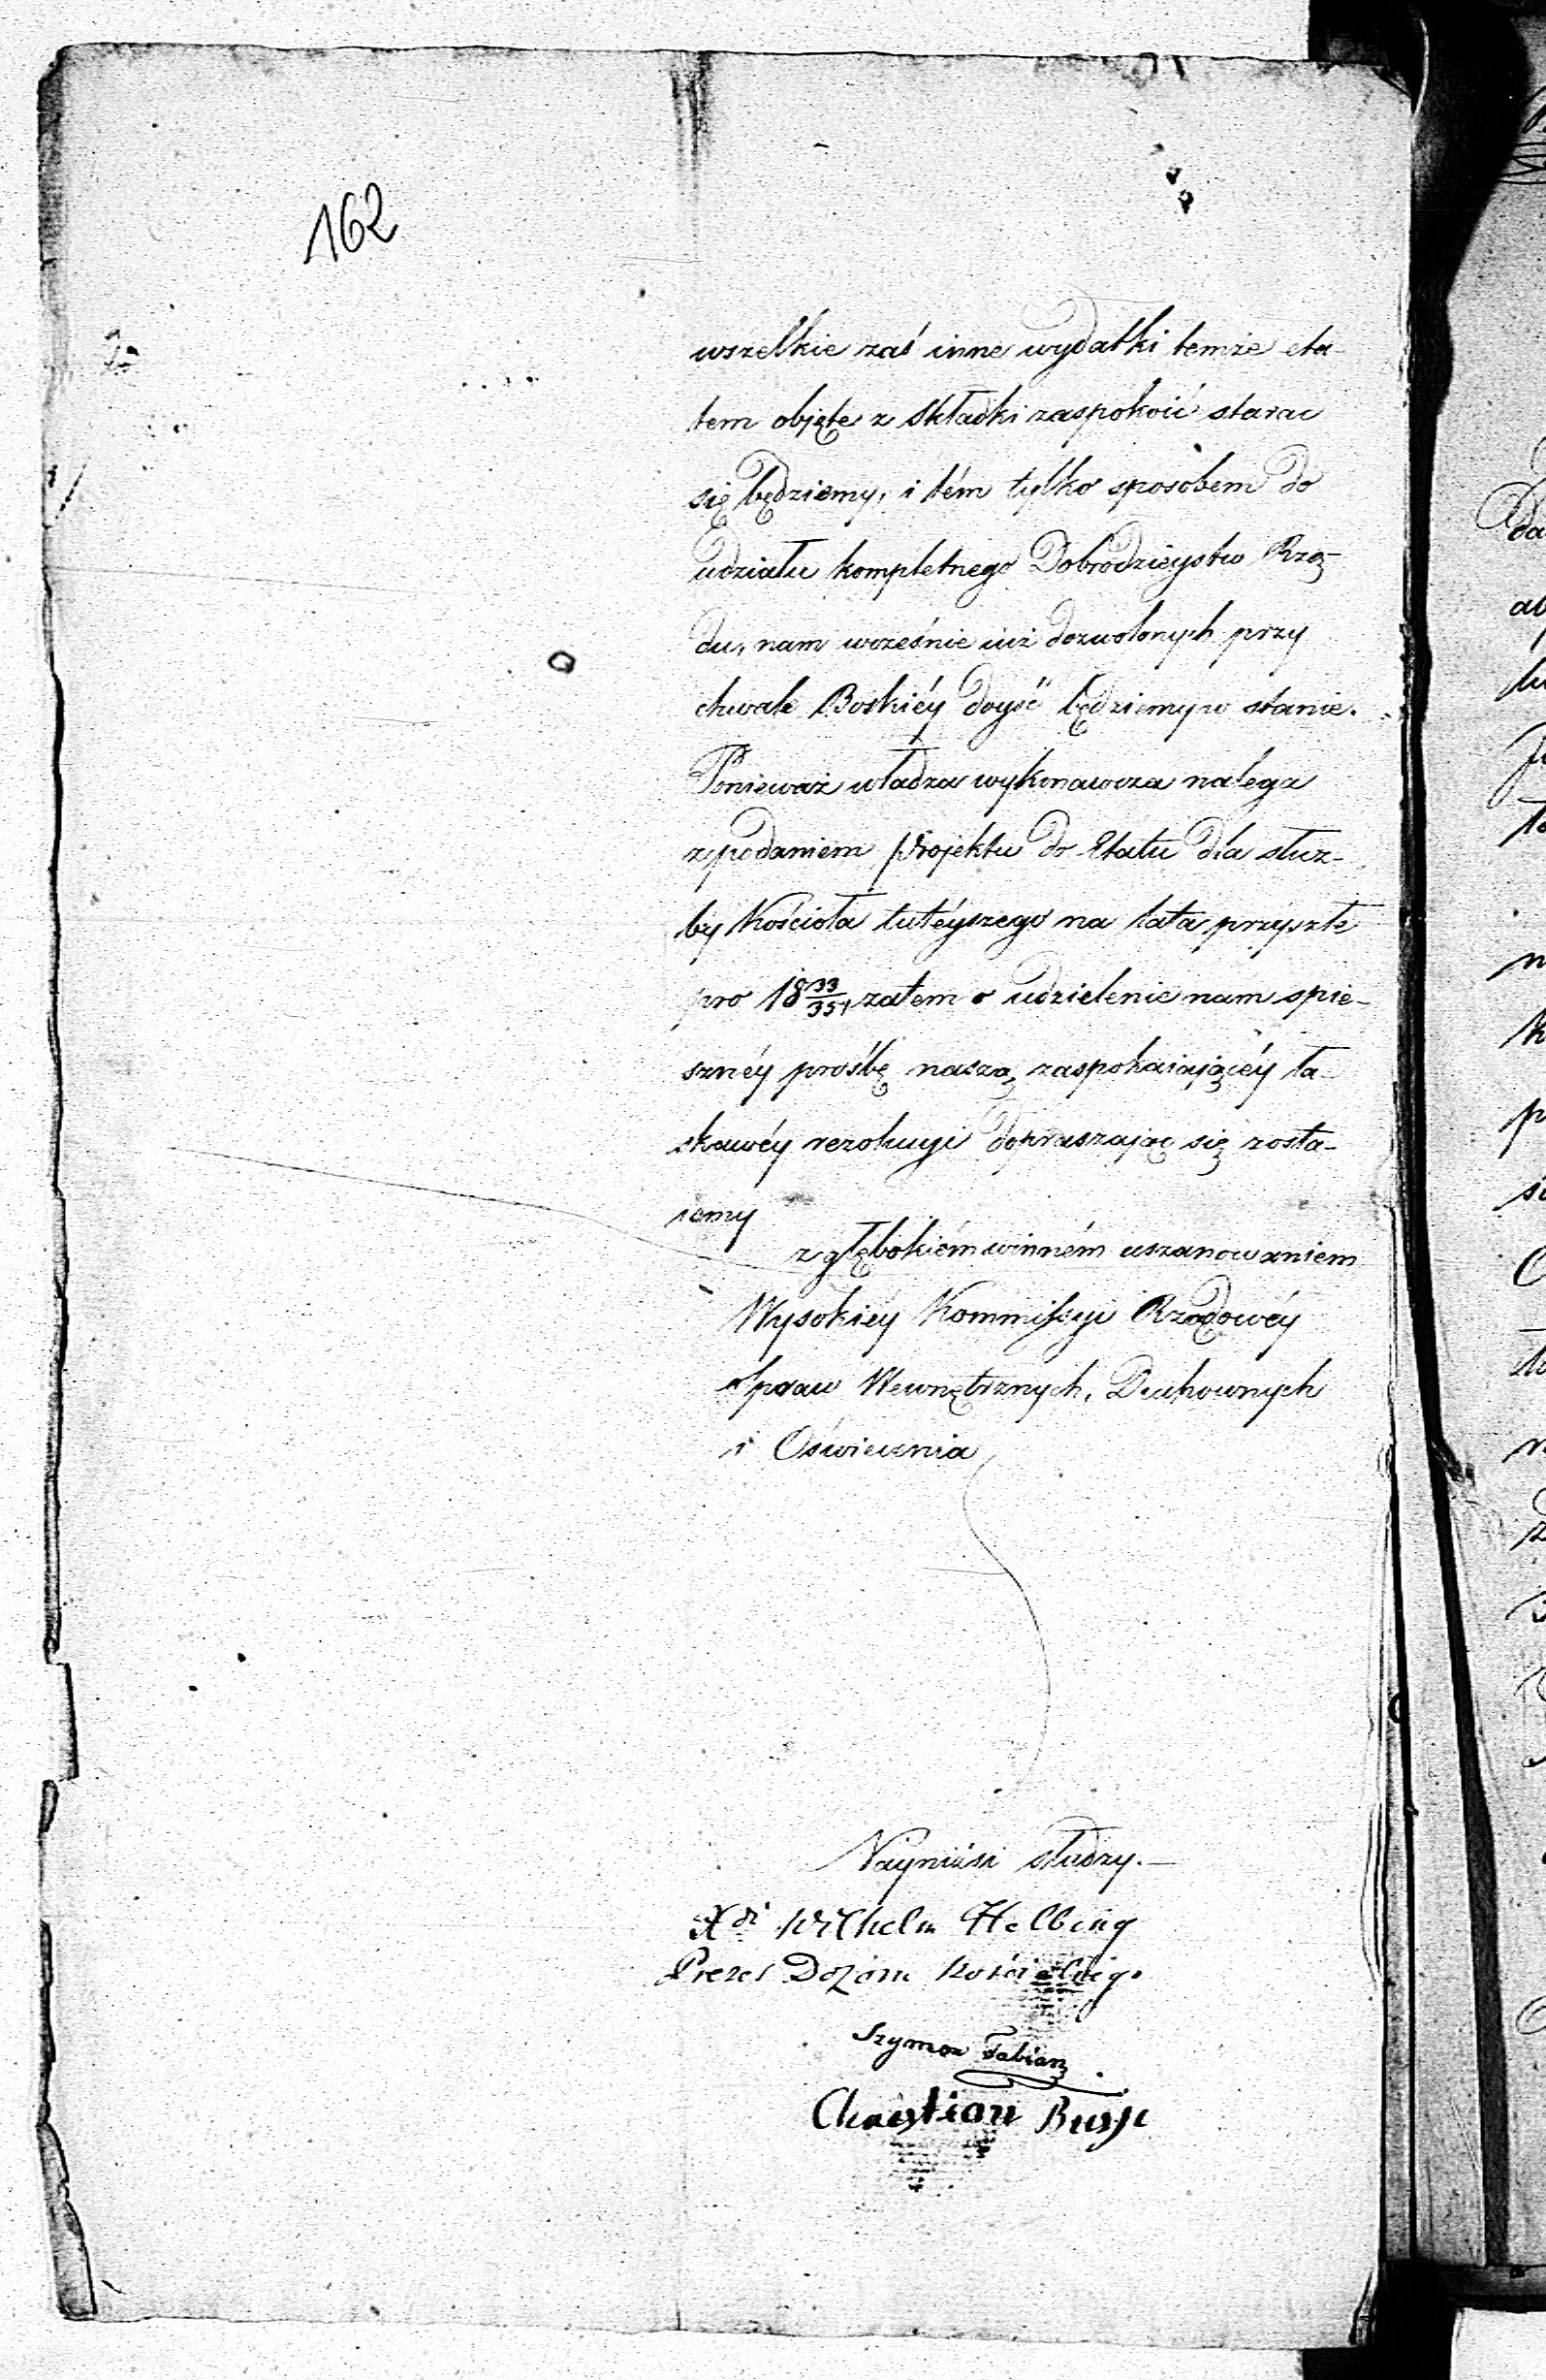 162
wszelkie zaś inne wydatki temże eta-
tem objęte z składki zaspokoić starac
się będziemy, i tém tylko sposobem do
udziału kompletnego Dobrodzieystw Rzą-
du, nam wcześnie iuż dozwolonych przy
chwale Boskiéy doyść będziemy w stanie.
Ponieważ władza wykonawcza nalega
z podaniem Projektu do Etatu dla służ-
by Kościoła tutéyszego na lata przyszłe
pro 18 33/35, zatem o udzielenie nam spie-
sznéy prośbę naszą zaspokaiaiącéy ła-
skawéy rezolucyi dopraszając się zosta-
iemy
z głębokiém winném uszanowaniem
Wysokiéy Kommissyi Rządowéy
Spraw Wewnętrznych, Duchownych
i Oświecenia
Nayniżsi słudzy.—
Wilhelm Helbing
Prezes Dozoru Kościelnego
Szymon Fabian
Christian Busse